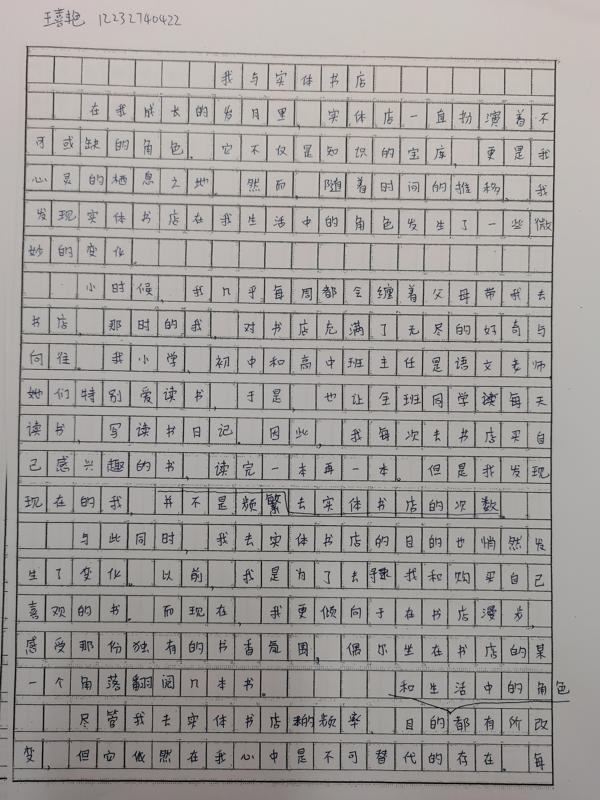 王喜艳 12232740422
我与实体书店
在我成长的岁月里，实体店一直扮演着不
可或缺的角色。它不仅是知识的宝库，更是我
心灵的栖息之地。然而，随着时间的推移，我
发现实体书店在我生活中的角色发生了一些微
妙的变化。
小时候，我几乎每周都会缠着父母带我去
书店，那时的我，对书店充满了无尽的好奇与
向往。我小学、初中和高中班主任是语文老师
她们特别爱读书，于是，也让全班同学读每天
读书，写读书日记。因此，我每次去书店买自
己感兴趣的书，读完一本再一本。但是我发现
现在的我，并不是频繁去实体书店的次数。
与此同时，我去实体书店的目的也悄然发
生了变化。以前，我是为了去寻找和购买自己
喜欢的书。而现在，我更倾向于在书店漫步，
感受那份独有的书香氛围，偶尔坐在书店的某
一个角落翻阅几本书。
和生活中的角色
尽管我去实体书店的频率、目的都有所改
变，但它依然在我心中是不可替代的存在。每